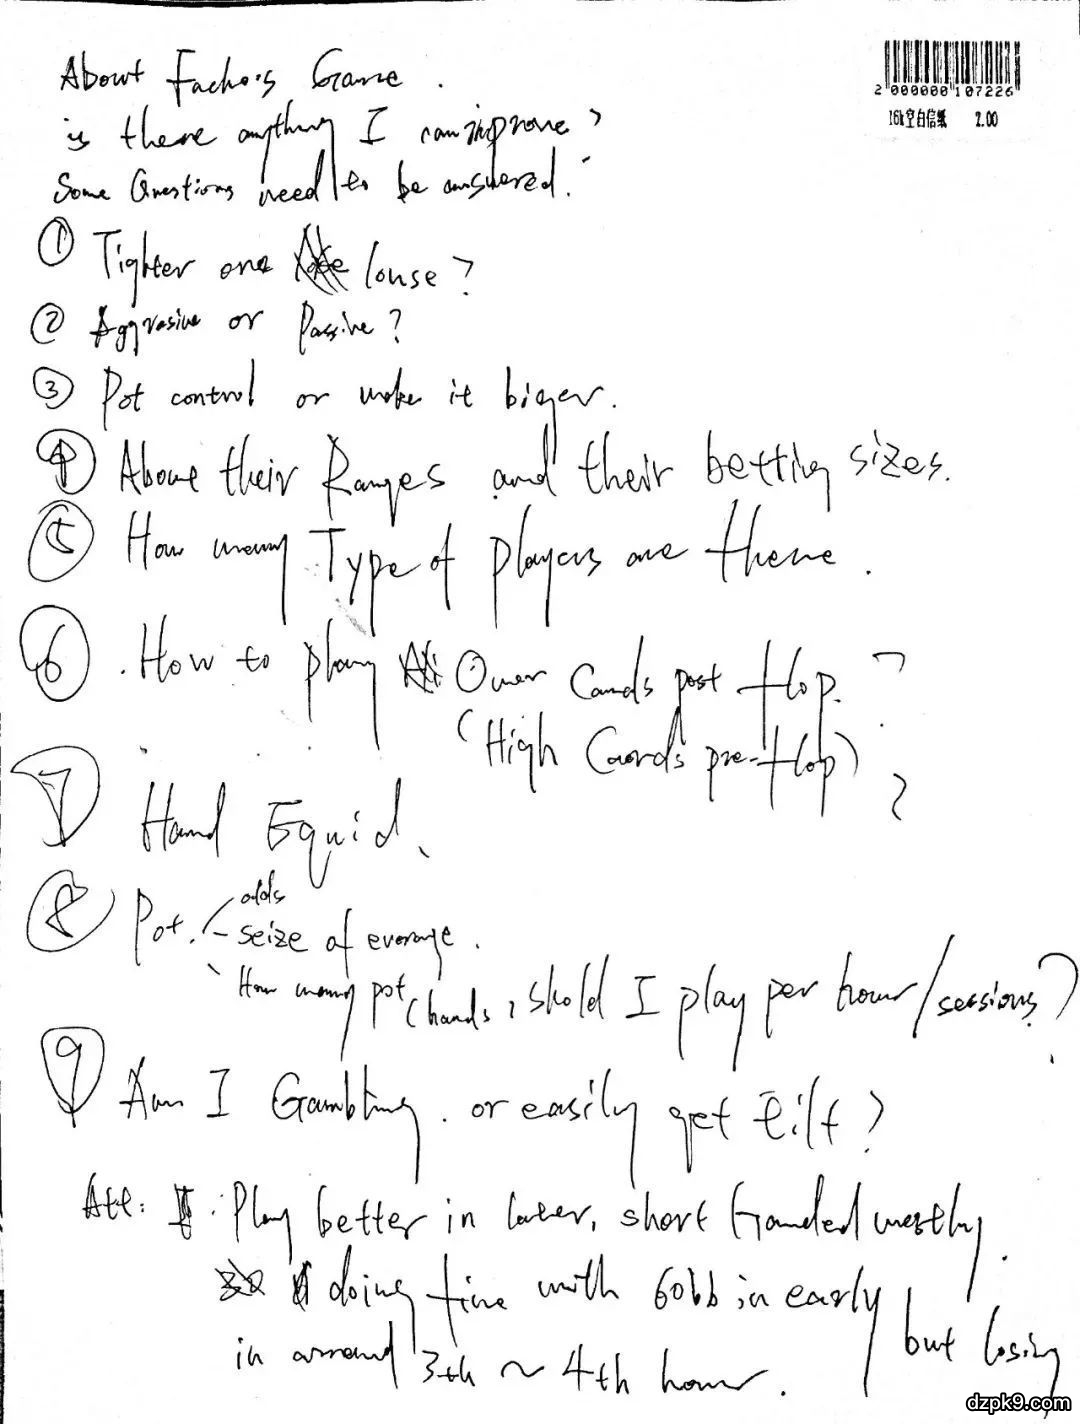 2 000000 107226
16k空白信纸 2.00
About Facho's Game.
is there anything I can improve?
Some Questions need to be answered.
① Tighter one louse?
② Aggrasive or Passive?
③ Pot control or make it biger.
④ About their Ranges and their betting sizes.
⑤ How many Type of players are there.
⑥ How to play Over Cards post flop. ?
(High Cards pre-flop) ?
⑦ Hand Equid.
⑧ Pot. odds
seize of everage.
How many pot (hands, shold I play per hour/sessions?
⑨ Am I Gambling. or easily get tilt?
Att: Play better in later, short Handed mostly.
doing fine with 60bb in early but losing
in around 3th ~ 4th hour.
dzpk9.com